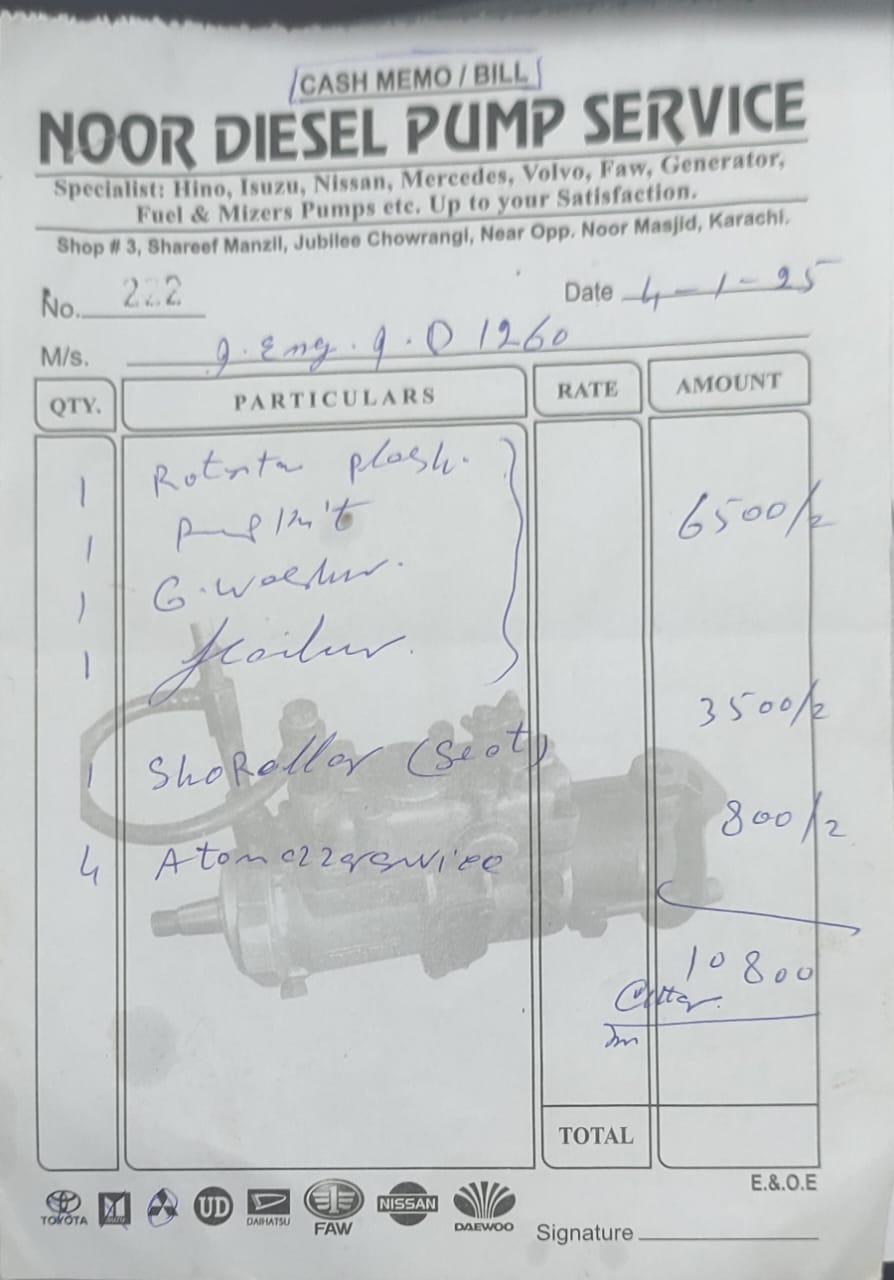 CASH MEMO / BILL
NOOR DIESEL PUMP SERVICE
Specialist: Hino, Isuzu, Nissan, Mercedes, Volvo, Faw, Generator,
Fuel & Mizers Pumps etc. Up to your Satisfaction.
Shop # 3, Shareef Manzil, Jubilee Chowrangi, Near Opp. Noor Masjid, Karachi.
No. 222 Date 4-1-25
M/s. g. Eng. g. D 1260
QTY. PARTICULARS RATE AMOUNT
1
1 6500/2
1 G. Washur.
1
3500/2
1 ShoRollar (Seot)
800/2
4 Atomezzerservice
10800
TOTAL
E.&.O.E
TOYOTA ISUZU UD DAIHATSU FAW NISSAN DAEWOO
Signature